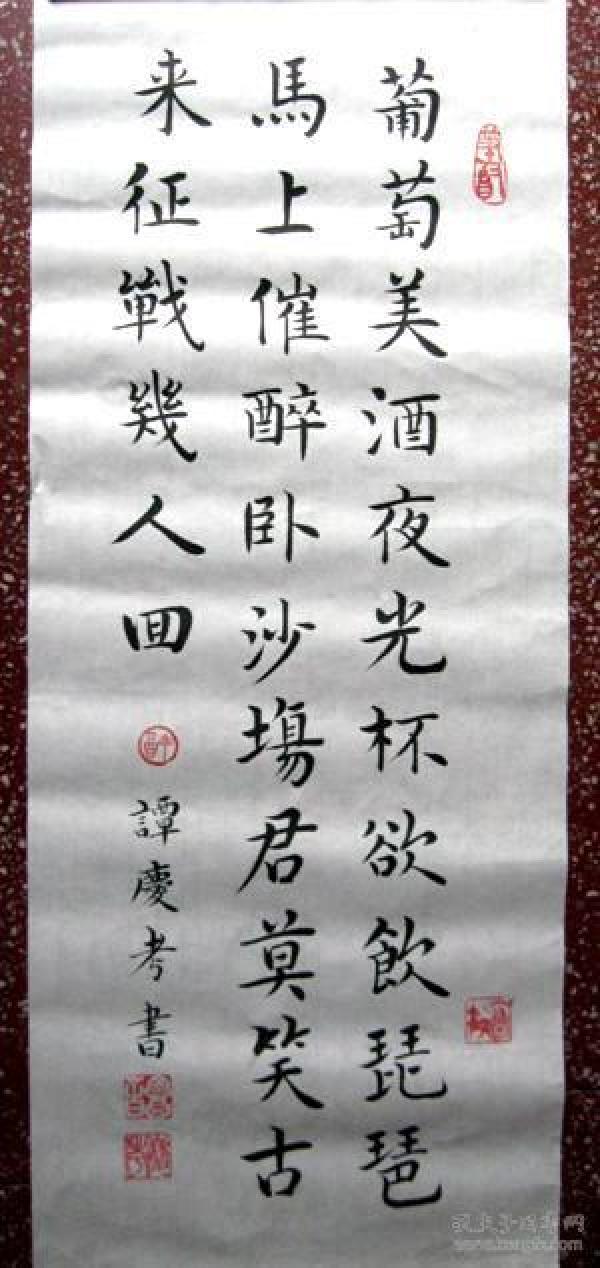 葡萄美酒夜光杯欲飲琵琶
馬上催醉卧沙場君莫笑古
来征戰幾人回
譚慶考書